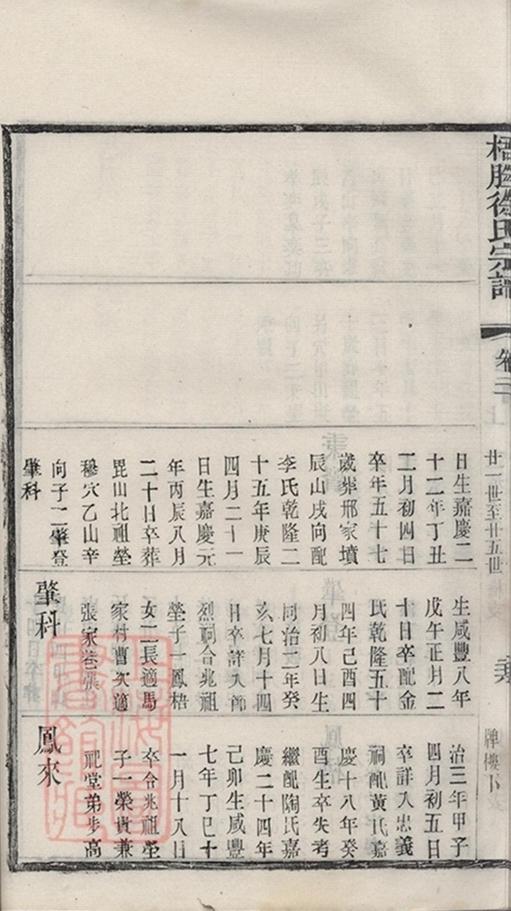 梧塍徐氏宗譜
卷三
廿一世至廿五世
牌樓下
日生嘉慶二
十二年丁丑
二月初四日
卒年五十七
歲葬邢家墳
辰山戌向配
李氏乾隆二
十五年庚辰
四月二十一
日生嘉慶元
年丙辰八月
二十日卒葬
毘山北祖塋
穆穴乙山辛
向子二肇登
肇科
生咸豐八年
戊午正月二
十日卒配金
氏乾隆五十
四年己酉四
月初八日生
同治二年癸
亥七月十四
日卒詳入節
烈祠合兆祖
塋子一鳳梧
女二長適馬
家村曹次適
張家巷張
肇科
治三年甲子
四月初五日
卒詳入忠義
祠配黃氏嘉
慶十八年癸
酉生卒失考
繼配陶氏嘉
慶二十四年
己卯生咸豐
七年丁巳十
一月十八日
卒合兆祖塋
子一榮貴兼
祀堂弟步高
鳳來